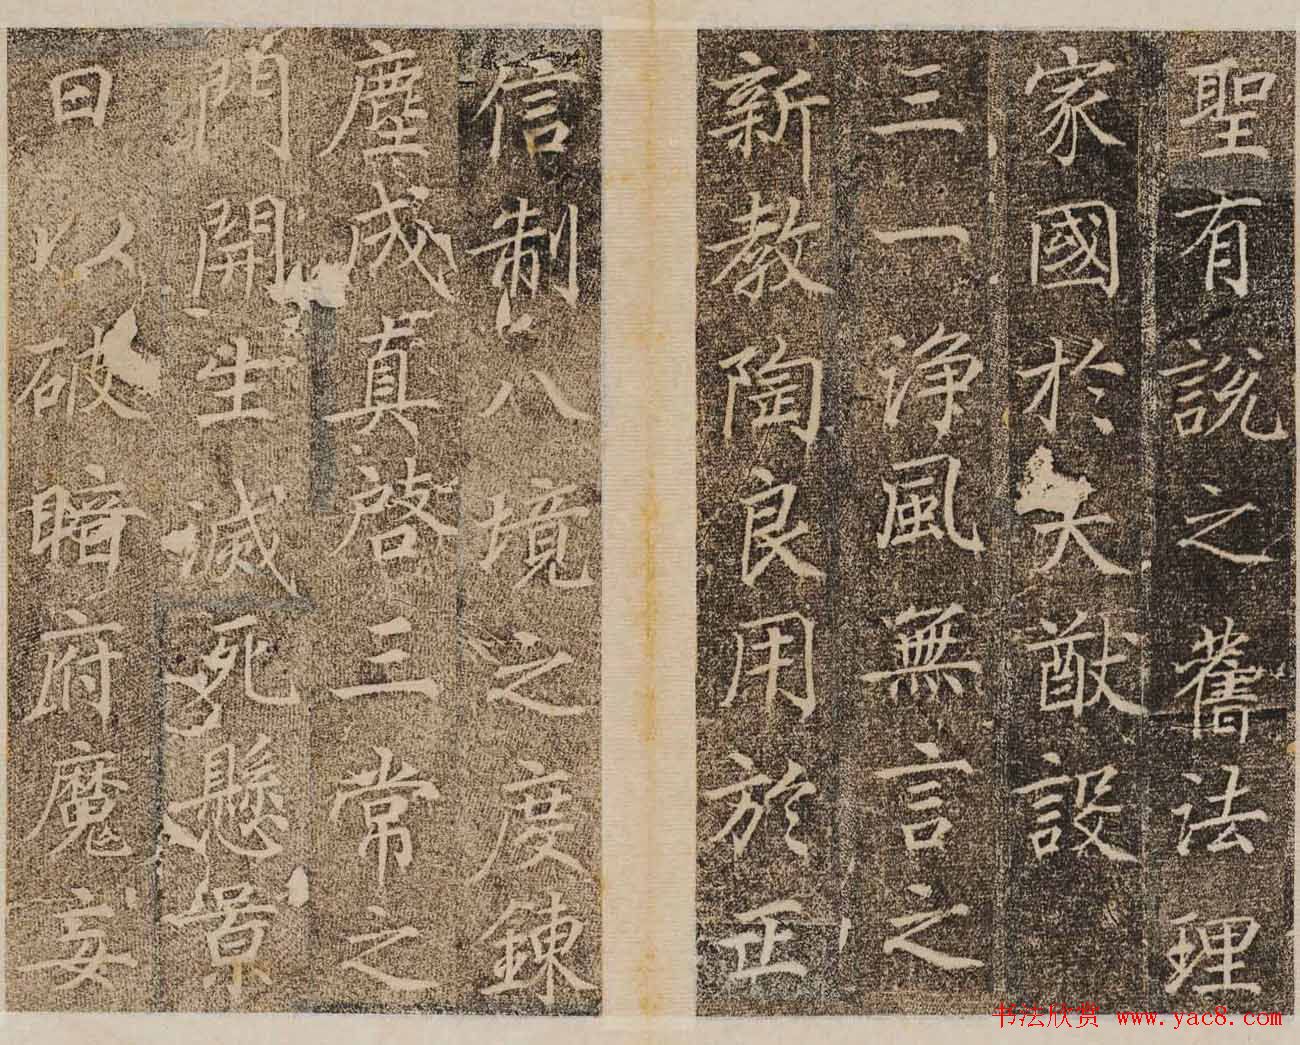 聖有說之舊法理
家國於大猷設
三一淨風無言之
新教陶良用於正
信制八境之度鍊
塵成真啓三常之
門開生滅死懸景
日以破暗府魔妄
书法欣赏 www.yac8.com